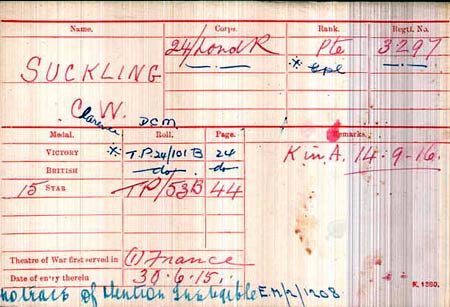 Name. Corps. Rank. Regtl. No.
SUCKLING 24/Lond R Pte 3297
* Cpl
C. W.
Clarence DCM
Medal. Roll. Page. Remarks.
VICTORY * T.P.24/101B 24 K in A. 14-9-16.
BRITISH do do
15 STAR TP/53B 44
Theatre of War first served in (1) France
Date of entry therein 30.6.15. K. 1380.
no trace of Emblem Ineligible EM/2/1208